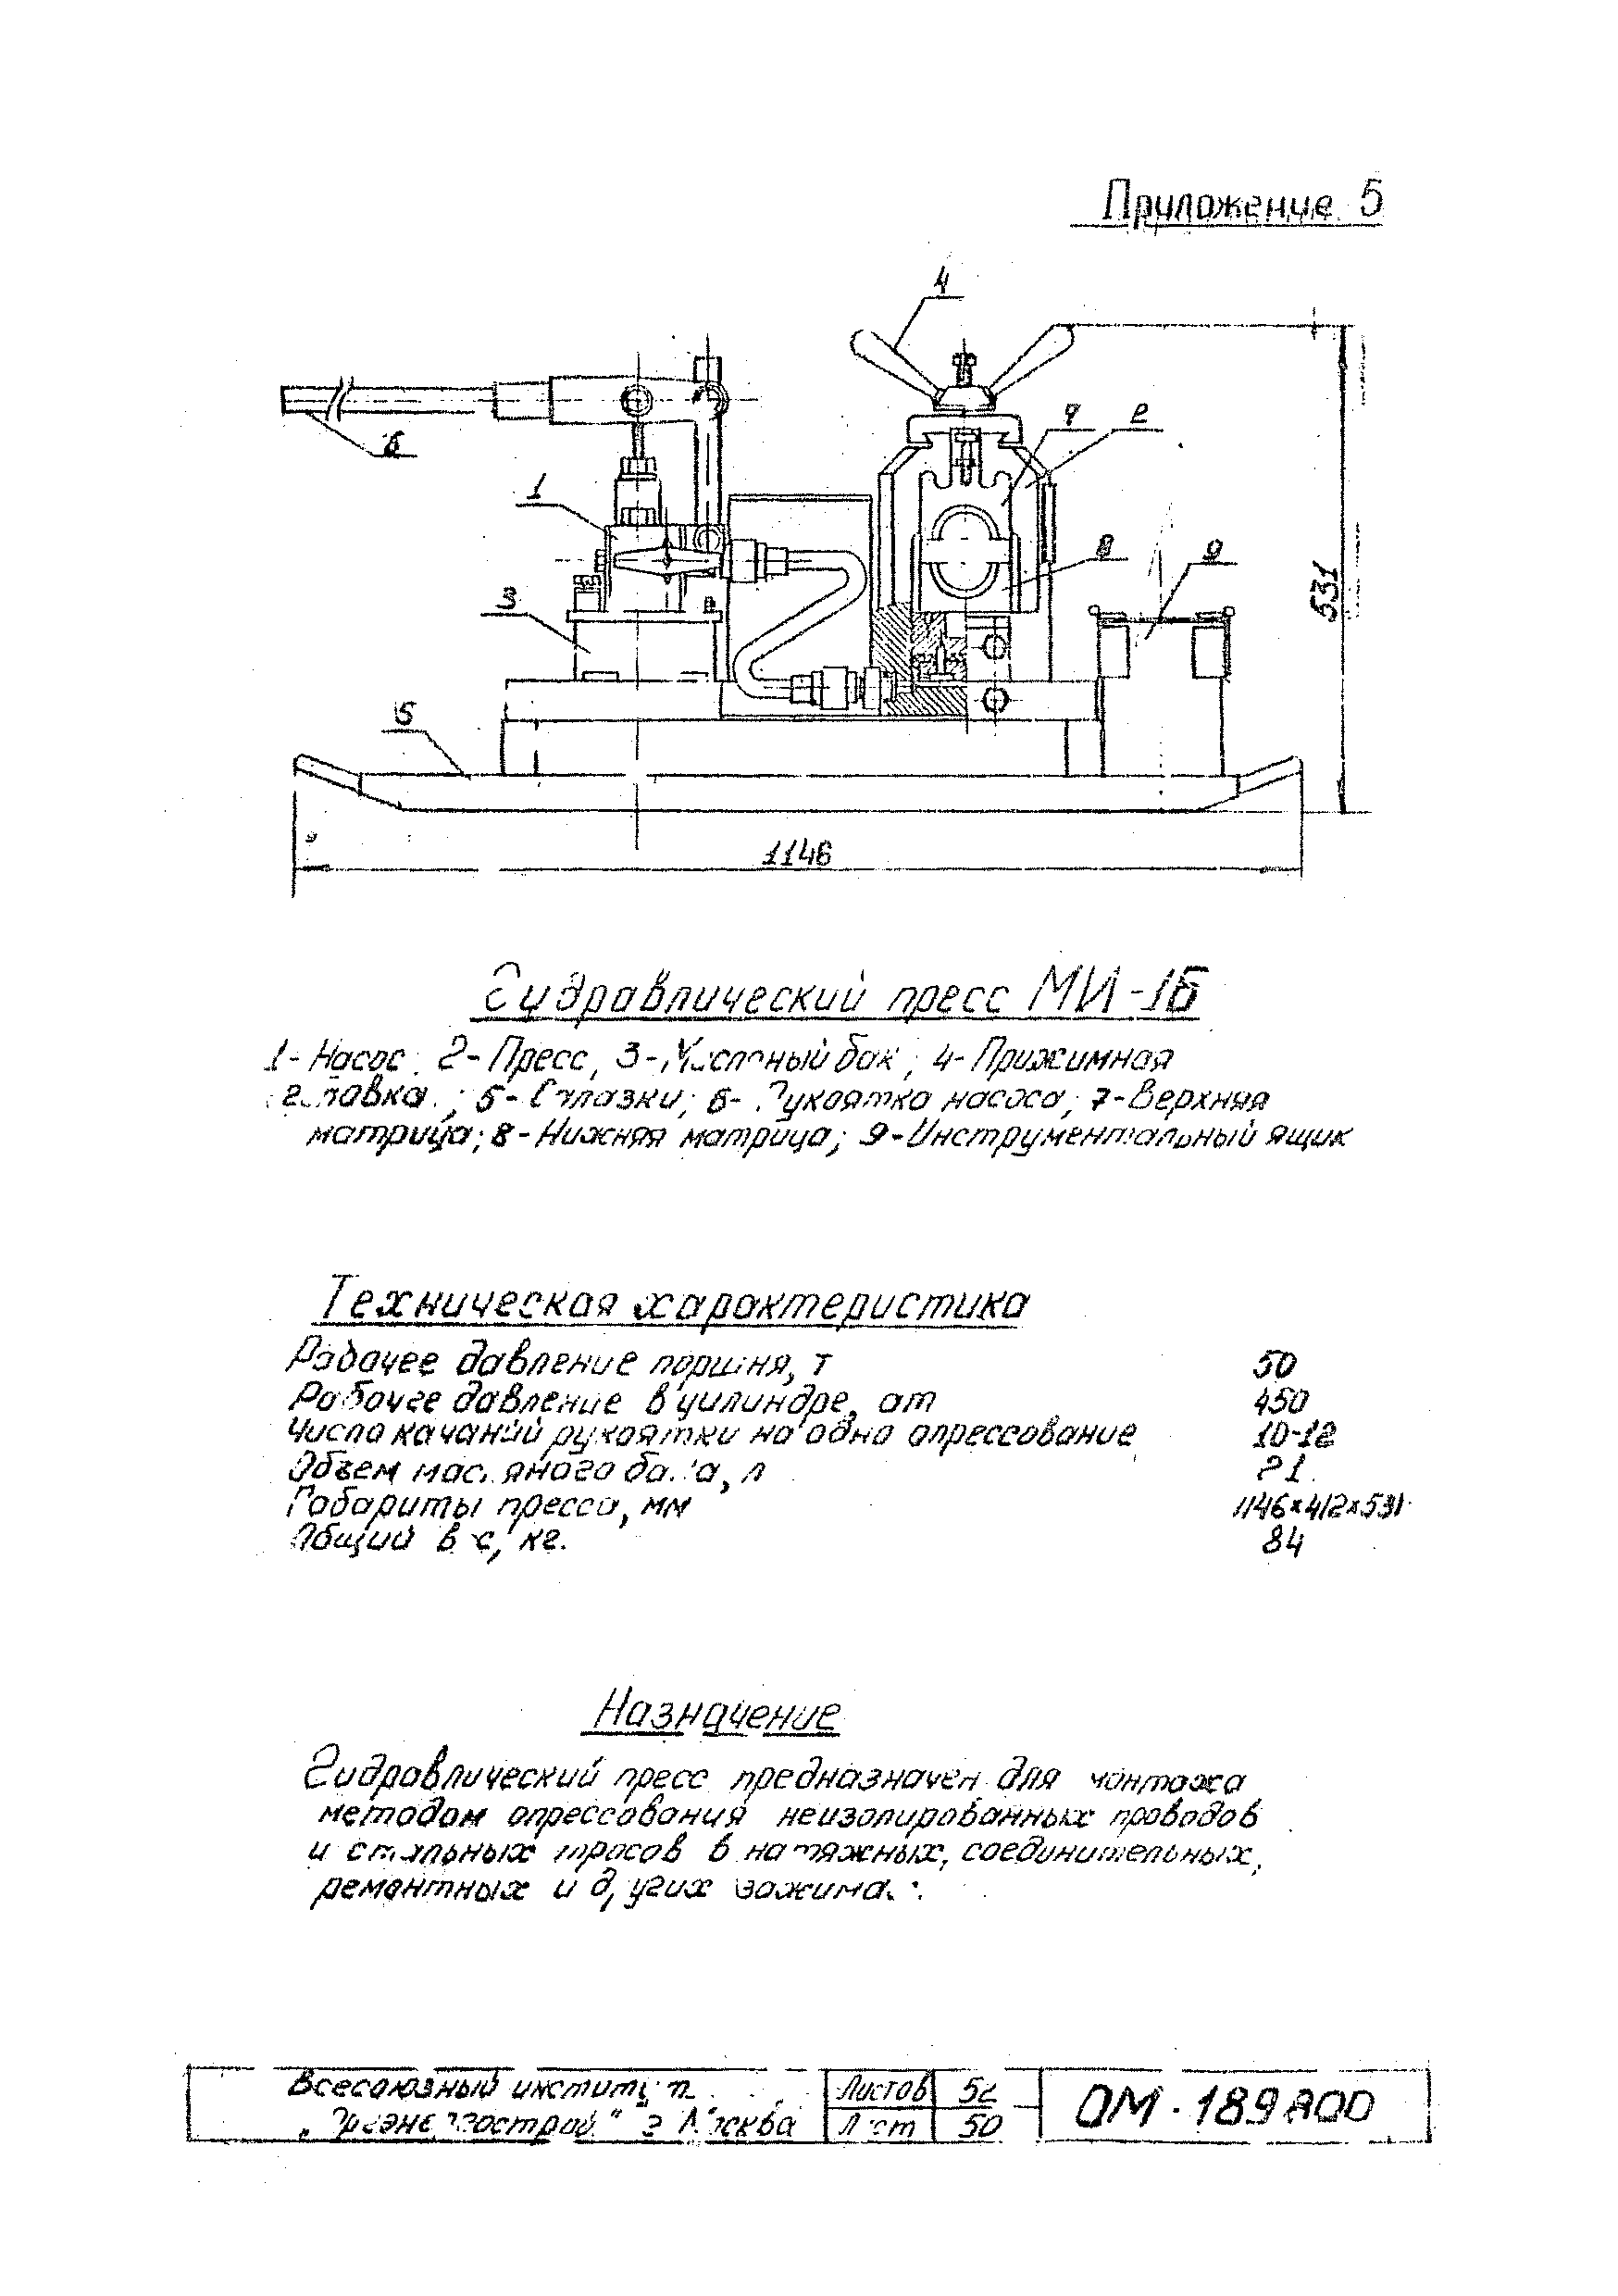 Приложение 5
4
7 2
6
1
8 9
3
531
5
1146
Гидравлический пресс МИ-1Б
1- Насос; 2- Пресс, 3- Масляный бак; 4- Прижимная
головка; 5- Салазки; 6- Рукоятка насоса; 7- Верхняя
матрица; 8- Нижняя матрица; 9- Инструментальный ящик
Техническая характеристика
Рабочее давление поршня, т 50
Рабочее давление в цилиндре, ат 450
Число качаний рукоятки на одно опрессование 10-12
Объем масляного бака, л
Габариты пресса, мм 1146×412×531
Общий вес, кг. 84
Назначение
Гидравлический пресс предназначен для монтажа
методом опрессования неизолированных проводов
и стальных тросов в натяжных, соединительных,
ремонтных и других зажимах.
Всесоюзный институт Листов 52 ОМ-189800
„Оргэнергострой" г Москва Лист 50